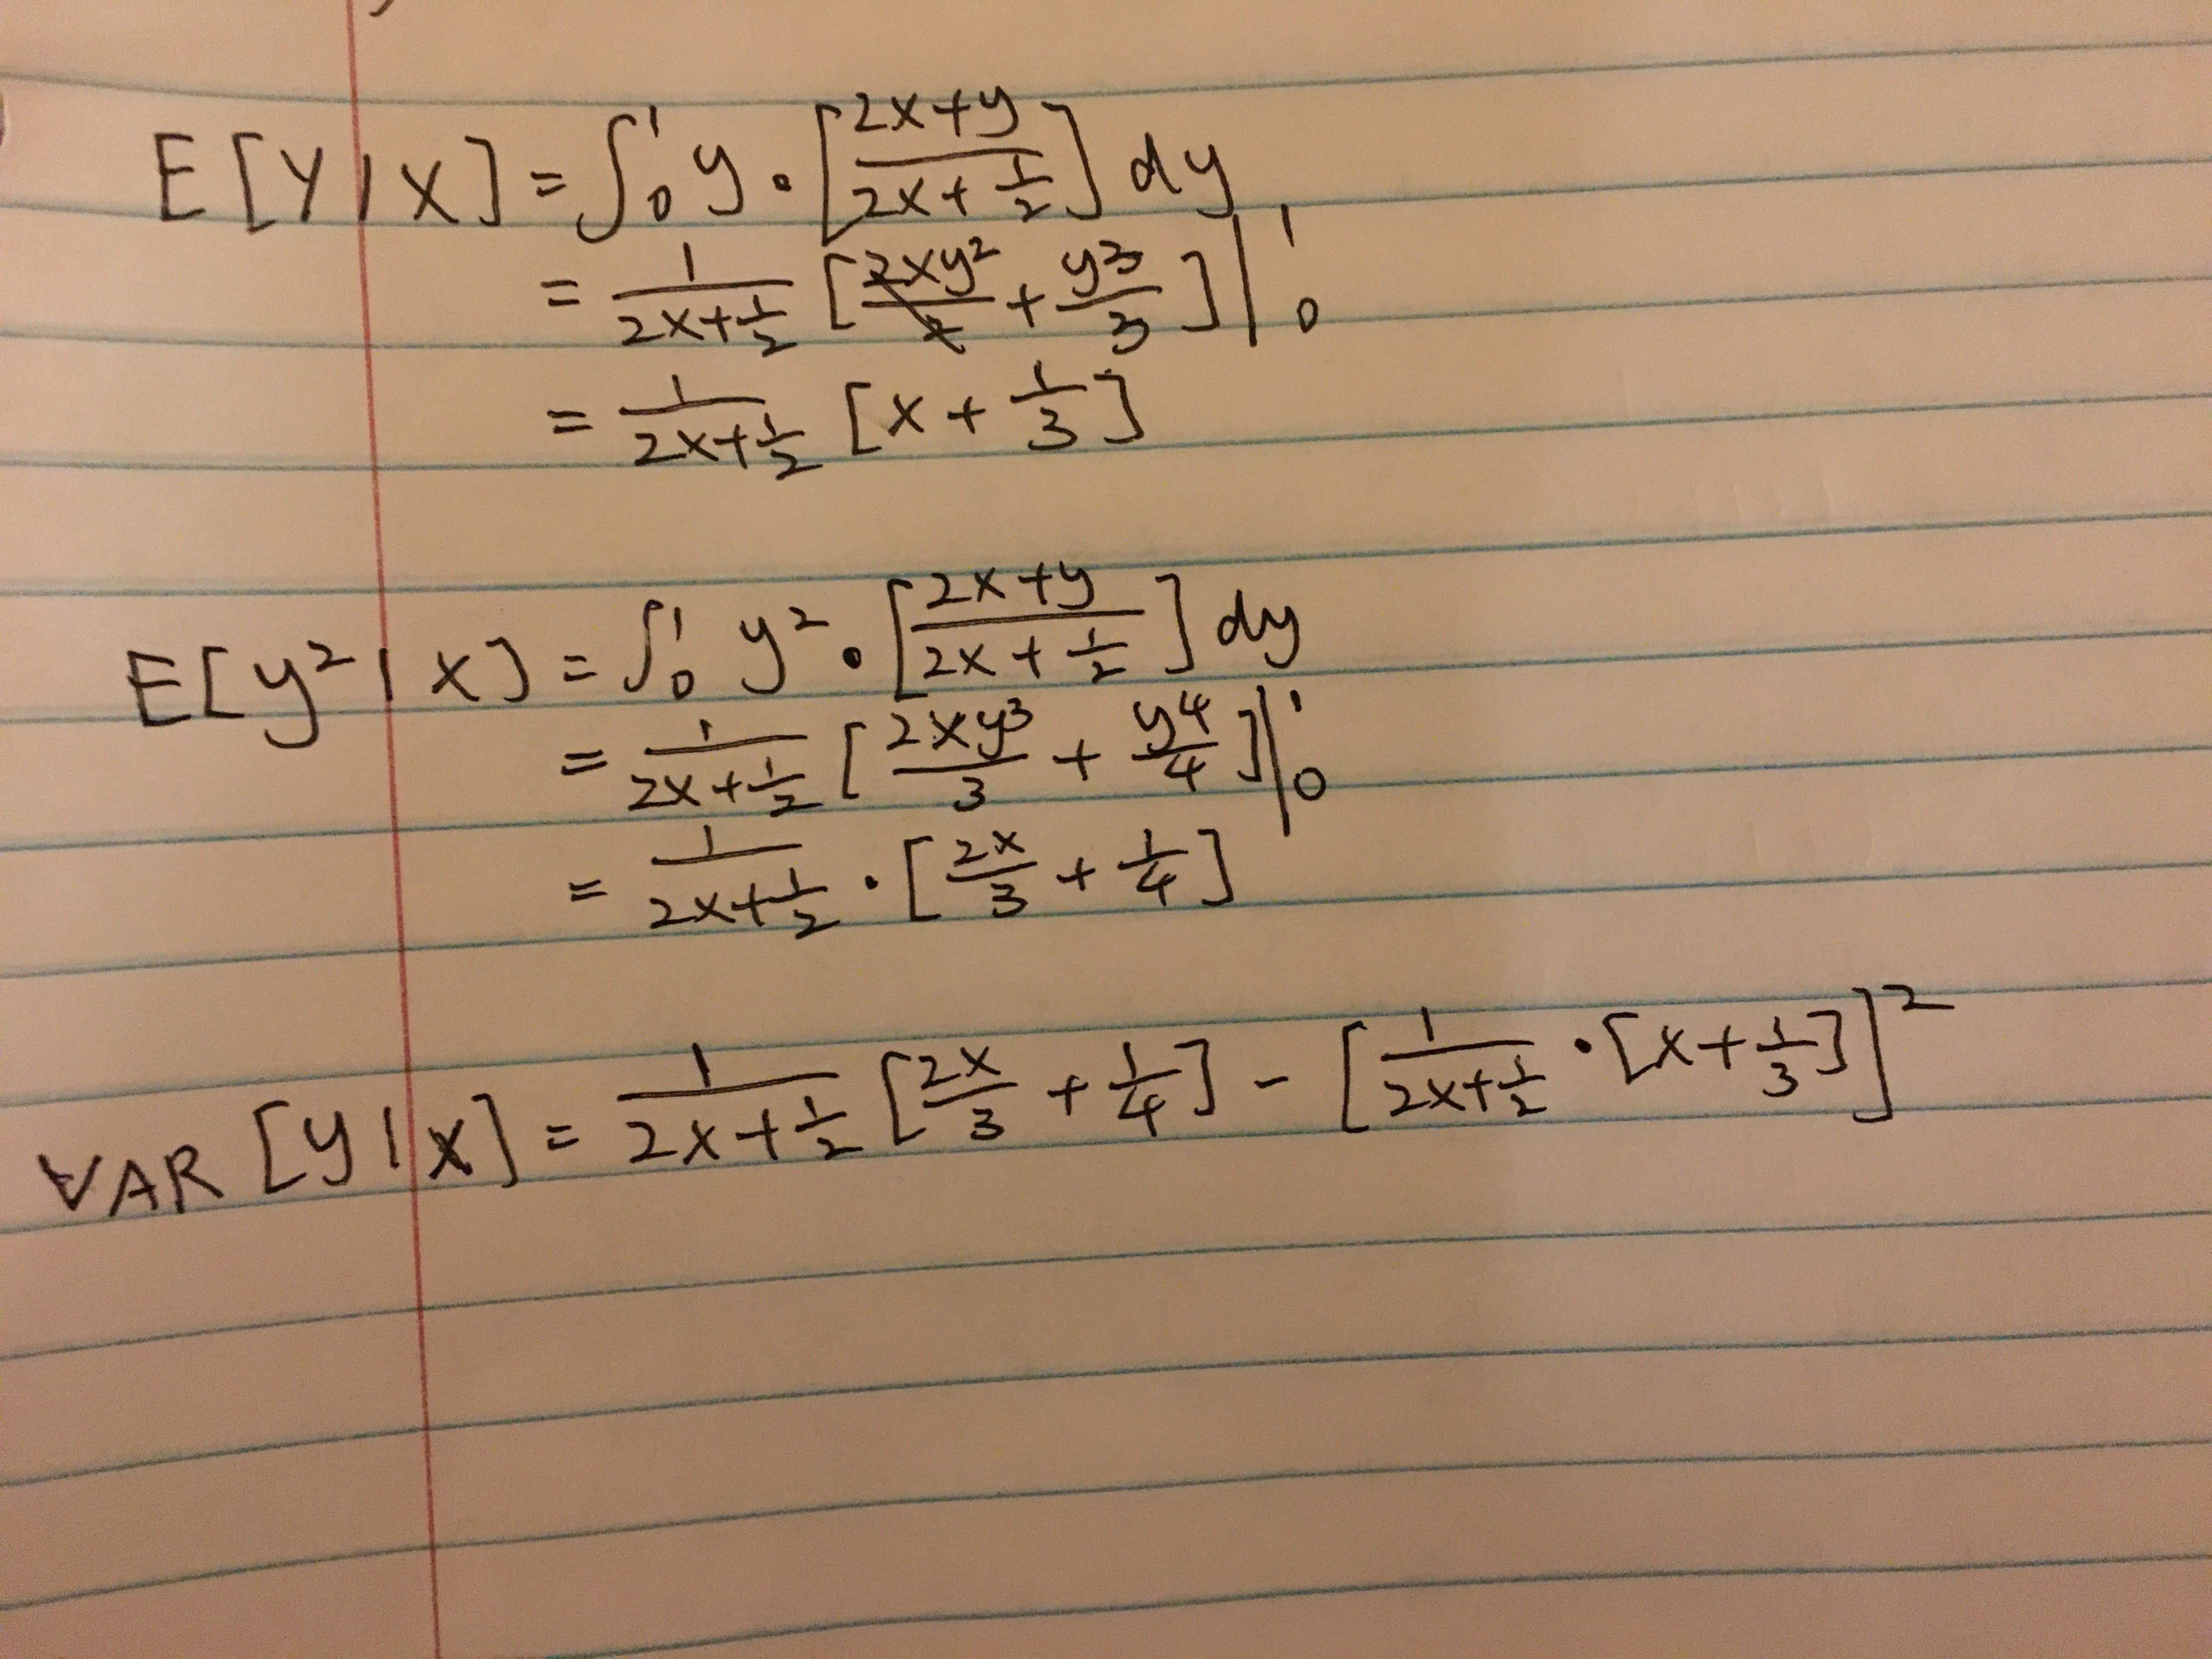 E[Y|X] = ∫₀¹ y · [(2x+y)/(2x+1/2)] dy
= 1/(2x+1/2) [2xy²/2 + y³/3] |₀¹
= 1/(2x+1/2) [x + 1/3]
E[y²|x] = ∫₀¹ y² · [(2x+y)/(2x+1/2)] dy
= 1/(2x+1/2) [2xy³/3 + y⁴/4] |₀¹
= 1/(2x+1/2) · [2x/3 + 1/4]
VAR [y|x] = 1/(2x+1/2) [2x/3 + 1/4] - [1/(2x+1/2) · [x+1/3]]²